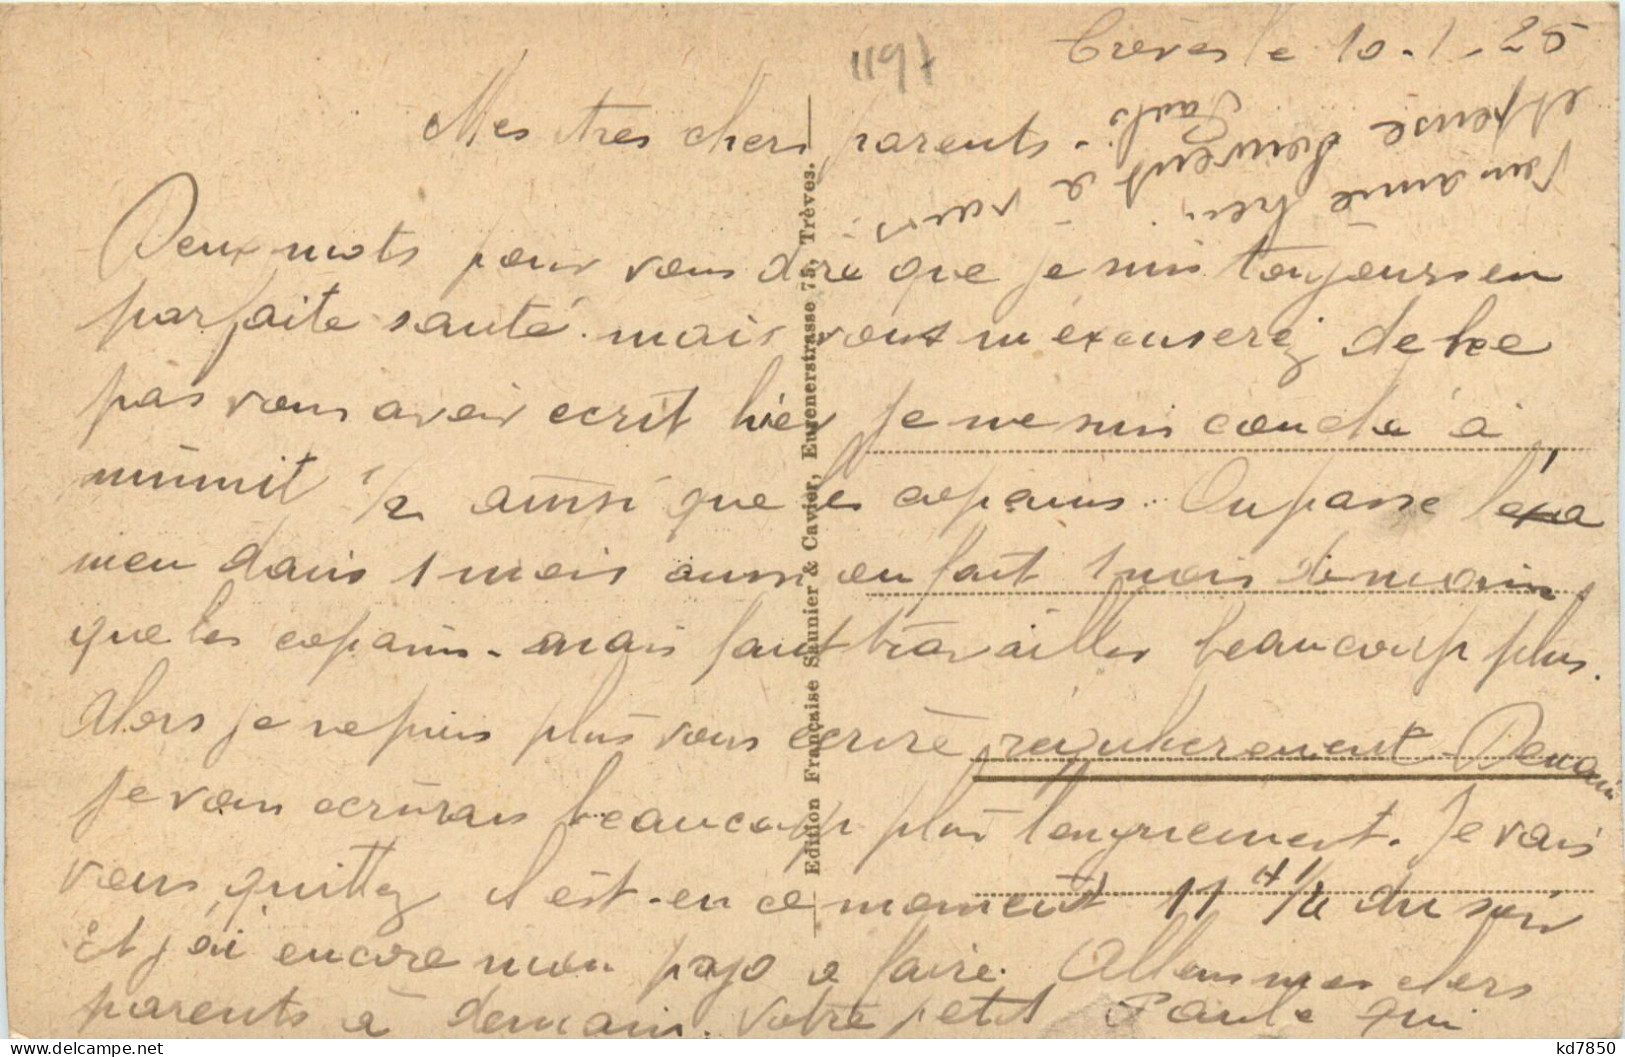 1197
Trèves le 10-1-25
Mes très chers parents -
Deux mots pour vous dire que je suis toujours en
parfaite santé. mais vous m'excuserez de ne
pas vous avoir ecrit hier je me suis couché à
minuit 1/2 ainsi que les copains. On passe l'exa
men dans 1 mois aussi on fait 1 mois de moins
que les copains - mais faut travailler beaucoup plus.
Alors je ne puis plus vous ecrire regulierement - Demain
je vous ecrirais beaucoup plus longuement. Je vais
vous quittez il est - en ce moment 11 H 1/2 du soir
et j'ai encore mon a faire. Allons mes chers
parents à demain. Votre petit qui
vous aime bien
et pense souvent à vous.
Edition Française Saunier & Cavier, Eurenerstrasse 75, Trèves.
kd7850